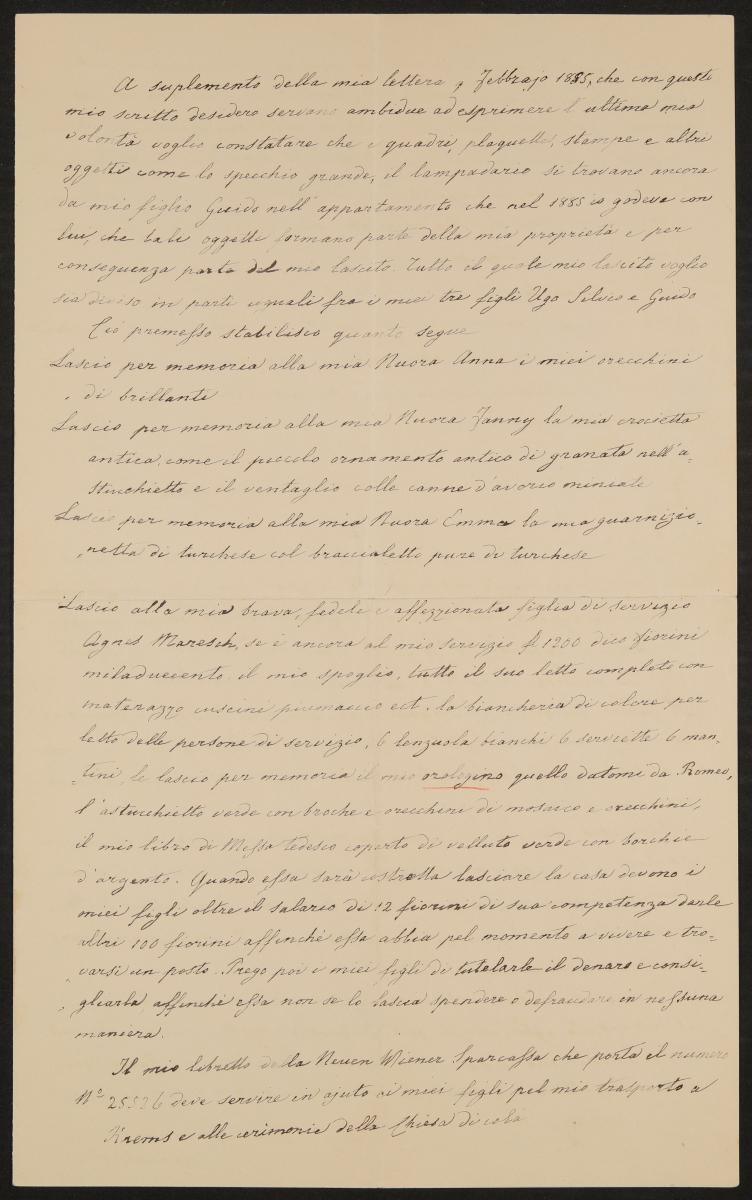 A suplemento della mia lettera, Febbrajo 1885, che con questo
mio scritto desidero servano ambidue ad esprimere l'ultima mia
volontà voglio constatare che i quadri, plaquette, stampe e altri
oggetti come lo specchio grande, il lampadario si trovano ancora
da mio figlio Guido nell'appartamento che nel 1885 io godeva con
lui, che tali oggetti formano parte della mia proprietà e per
conseguenza parte del mio lascito. Tutto il quale mio lascito voglio
sia diviso in parti uguali fra i miei tre figli Ugo Silvio e Guido
Ciò premesso stabilisco quanto segue
Lascio per memoria alla mia Nuora Anna i miei orecchini
di brillanti
Lascio per memoria alla mia Nuora Fanny la mia crocietta
antica, come il piccolo ornamento antico di granata nell'a-
stucchietto e il ventaglio colle canne d'avorio miniate
Lascio per memoria alla mia Nuora Emma la mia guarnizio-
netta di turchese col braccialetto pure di turchese
Lascio alla mia brava, fedele e affezzionata figlia di servizio
Agnes Maresch, se è ancora al mio servizio fl 1200 dico fiorini
milladuecento. il mio spoglio, tutto il suo letto completo con
materazzo cuscini piumaccio ect. la biancheria di colore per
letto delle persone di servizio, 6 lenzuola bianchi 6 serviette 6 man-
tini, le lascio per memoria il mio orologino quello datomi da Romeo,
l'astucchietto verde con broche e orecchini di mosaico e orecchini,
il mio libro di Messa tedesco coperto di velluto verde con borchie
d'argento. Quando essa sarà costretta lasciare la casa devono i
miei figli oltre il salario di 12 fiorini di sua competenza darle
altri 100 fiorini affinché essa abbia pel momento a vivere e tro-
varsi un posto. Prego poi i miei figli di tutelarle il denaro e consi-
gliarla affinché essa non se lo lascia spendere o defraudare in nessuna
maniera.
Il mio libretto della Neuen Wiener Sparcassa che porta il numero
No 25526 deve servire in ajuto ai miei figli pel mio trasporto a
Krems e alle cerimonie della Chiesa di colà